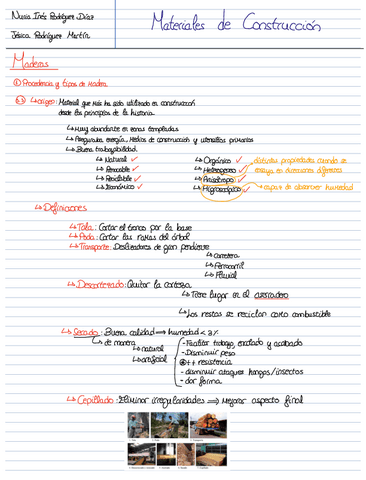 Nuria Inés Rodríguez Díaz
Jesica Rodríguez Martín
Materiales de Construcción
Maderas
① Procedencia y tipos de madera
1.1 ↳ origen: Material que más ha sido utilizado en construcción
desde los principios de la historia.
↳ Muy abundante en zonas templadas
↳ energía, Medios de construcción y utensilios primarios
↳ Buena trabajabilidad.
↳ Natural ✓
↳ Renovable ✓
↳ Reciclable ✓
↳ Económico ✓
↳ Orgánico ✓
↳ Heterogéneo ✓
↳ Anisótropo ✓
↳ Higroscópico ✓
distintas propiedades cuando se
ensaya en direcciones diferentes
→ capaz de absorber humedad
↳ Definiciones
↳ Tala: Cortar el tronco por la base
↳ Poda: Cortar las ramas del árbol
↳ Transporte: Deslizadores de gran pendiente
↳ Carretera
↳ Ferrocarril
↳ Fluvial
↳ Descortezado: Quitar la corteza
↳ Tiene lugar en el aserradero
↳ Los restos se reciclan como combustible
↳ Secado: Buena calidad ⟹ humedad < 3%
↳ de manera
↳ natural
↳ artificial
- Facilitar trabajo, encolado y acabado
- Disminuir peso
++ resistencia
- disminuir ataques hongos/insectos
- dar forma.
↳ Cepillado: Eliminar irregularidades ⟹ Mejorar aspecto final